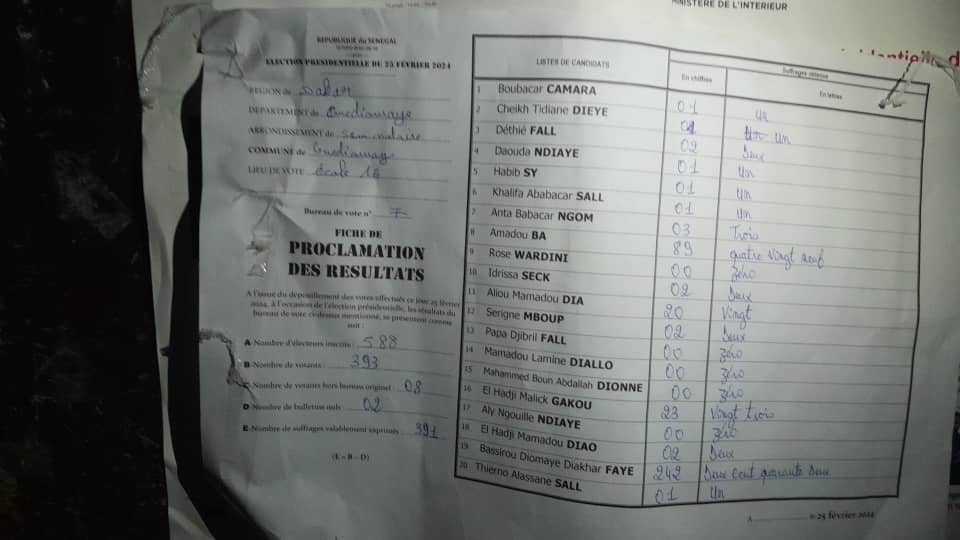 MINISTERE DE L'INTERIEUR
REPUBLIQUE du SENEGAL
ELECTION PRESIDENTIELLE DU 25 FÉVRIER 2024
REGION de Dakar
DEPARTEMENT de Guediawaye
ARRONDISSEMENT de Sam notaire
COMMUNE de Guediawaye
LIEU DE VOTE école 16
Bureau de vote n° 7
FICHE DE
PROCLAMATION
DES RESULTATS
A l'issue du dépouillement des votes effectués ce jour 25 février
2024, à l'occasion de l'élection présidentielle, les résultats du
bureau de vote ci-dessus mentionné, se présentent comme
suit :
A-Nombre d'électeurs inscrits : 588
B-Nombre de votants : 393
C-Nombre de votants hors bureau originel : 08
D-Nombre de bulletins nuls : 02
E-Nombre de suffrages valablement exprimés : 391
(E = B - D)
LISTES DE CANDIDATS
Suffrages obtenus
En chiffres En lettres
1 Boubacar CAMARA 01 Un
2 Cheikh Tidiane DIEYE 01 Un Un
3 Déthié FALL 02 Deux
4 Daouda NDIAYE 01 Un
5 Habib SY 01 Un
6 Khalifa Ababacar SALL 01 Un
7 Anta Babacar NGOM 03 Trois
8 Amadou BA 89 quatre vingt neuf
9 Rose WARDINI 00 zéro
10 Idrissa SECK 02 Deux
11 Aliou Mamadou DIA 20 Vingt
12 Serigne MBOUP 02 Deux
13 Papa Djibril FALL 00 zéro
14 Mamadou Lamine DIALLO 00 zéro
15 Mahammed Boun Abdallah DIONNE 00 zéro
16 El Hadji Malick GAKOU 23 Vingt trois
17 Aly Ngouille NDIAYE 00 zéro
18 El Hadji Mamadou DIAO 02 Deux
19 Bassirou Diomaye Diakhar FAYE 242 Deux cent quarante deux
20 Thierno Alassane SALL 01 Un
A le 25 février 2024